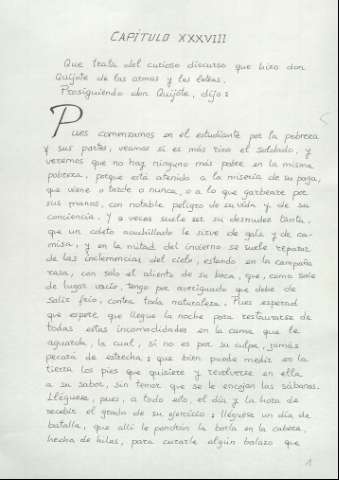 CAPÍTULO XXXVIII
Que trata del curioso discurso que hizo don
Quijote de las armas y las letras.
Prosiguiendo don Quijote, dijo:
Pues comenzamos en el estudiante por la pobreza
y sus partes, veamos si es más rico el soldado, y
veremos que no hay ninguno más pobre en la misma
pobreza, porque está atenido a la miseria de su paga,
que viene o tarde o nunca, o a lo que garbeare por
sus manos, con notable peligro de su vida y de su
conciencia. Y a veces suele ser su desnudez tanta,
que un coleto acuchillado le sirve de gala y de ca-
misa, y en la mitad del invierno se suele reparar
de las inclemencias del cielo, estando en la campaña
rasa, con solo el aliento de su boca, que, como sale
de lugar vacío, tengo por averiguado que debe de
salir frío, contra toda naturaleza. Pues esperad
que espere que llegue la noche para restaurarse de
todas estas incomodidades en la cama que le
aguarda, la cual, si no es por su culpa, jamás
pecará de estrecha; que bien puede medir en la
tierra los pies que quisiere y revolverse en ella
a su sabor, sin temor que se le encojan las sábanas.
Lléguese, pues, a todo esto, el día y la hora de
recebir el grado de su ejercicio; lléguese un día de
batalla, que allí le pondrán la borla en la cabeza,
hecha de hilas, para curarle algún balazo que
1